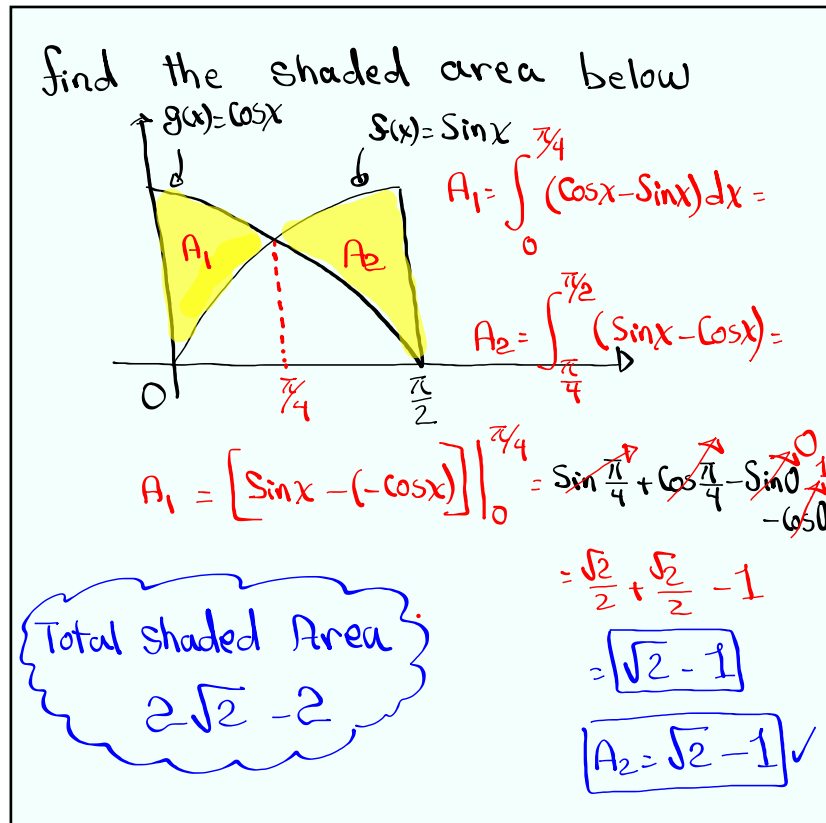 find the shaded area below
g(x)=Cosx
f(x)=Sinx
A₁ = ∫₀^{π/4} (Cosx-Sinx)dx =
A₁
A₂
A₂ = ∫_{π/4}^{π/2} (Sinx-Cosx)=
0
π/4
π/2
A₁ = [Sinx-(-Cosx)]|₀^{π/4} = Sin π/4 + Cos π/4 - Sin0 0
-Cos0 1
= √2/2 + √2/2 - 1
= √2 - 1
A₂ = √2 - 1 ✓
Total Shaded Area
2√2 - 2